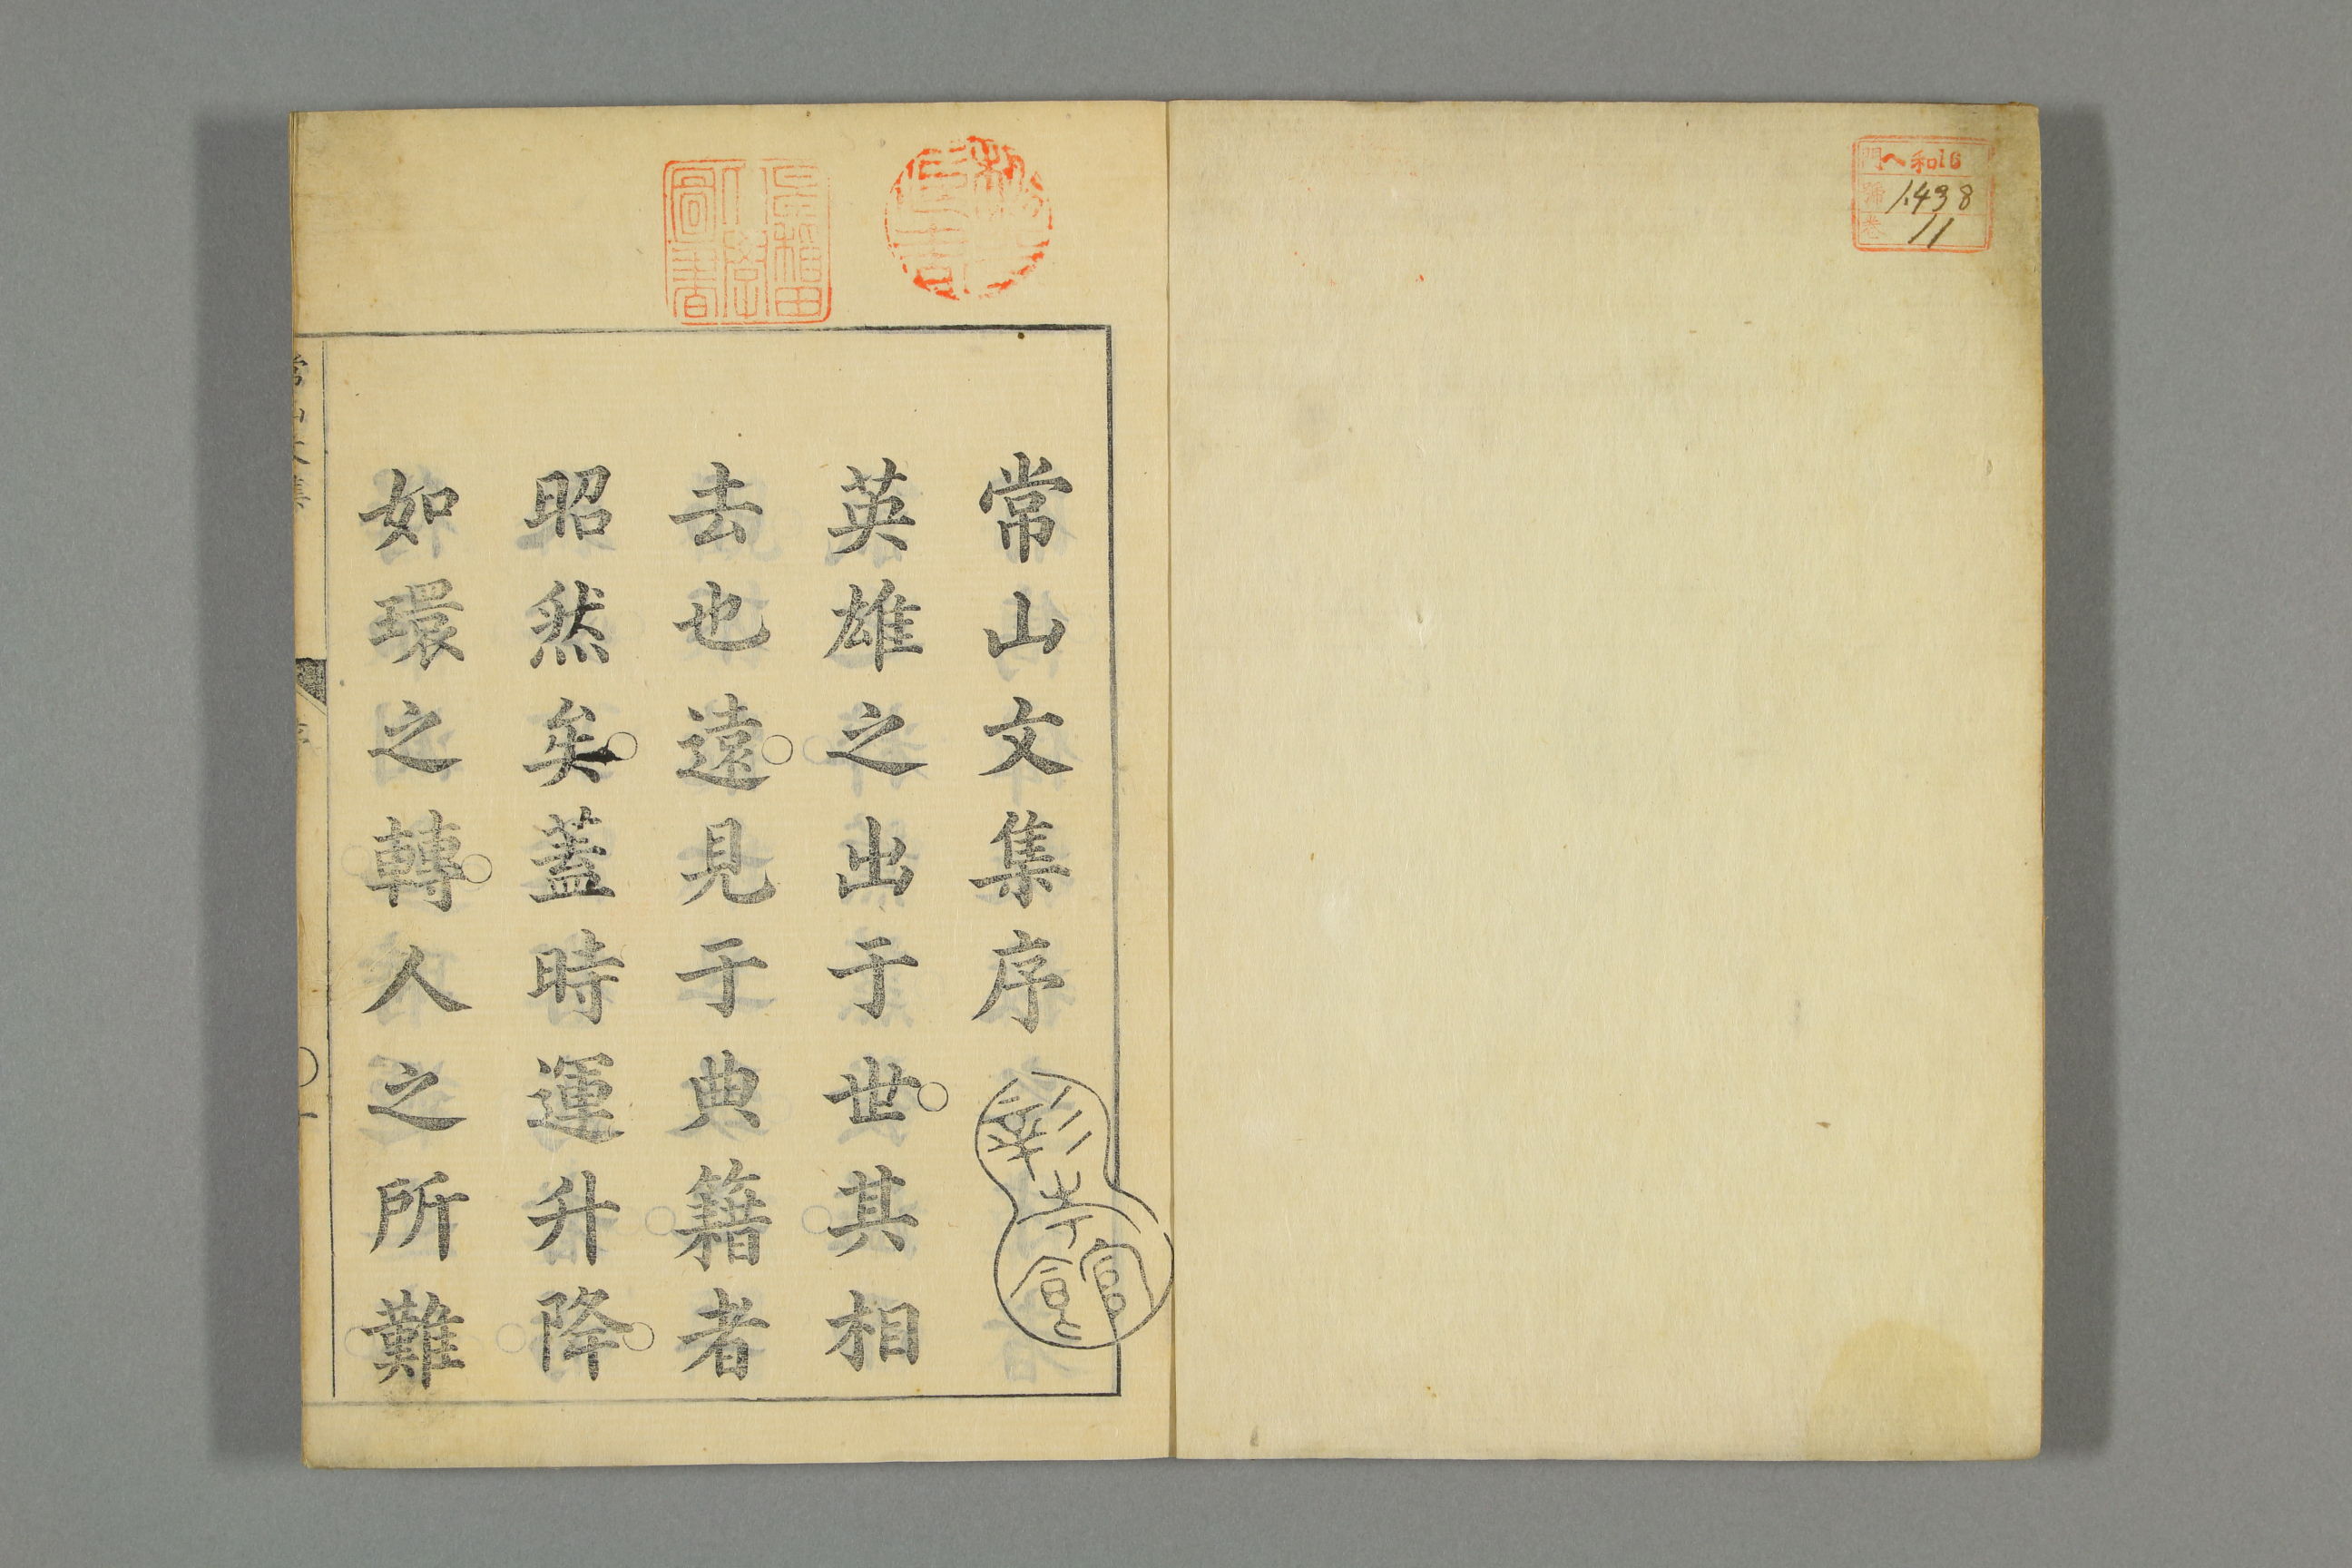 門 ヘ和16
號 1438
卷 11
常山文集序
彰考館
英雄之出于世。其相
去也遠。見于典籍者
昭然矣。蓋時運升降。
如環之轉。人之所難
早稲田大學圖書
常山文集
序
一